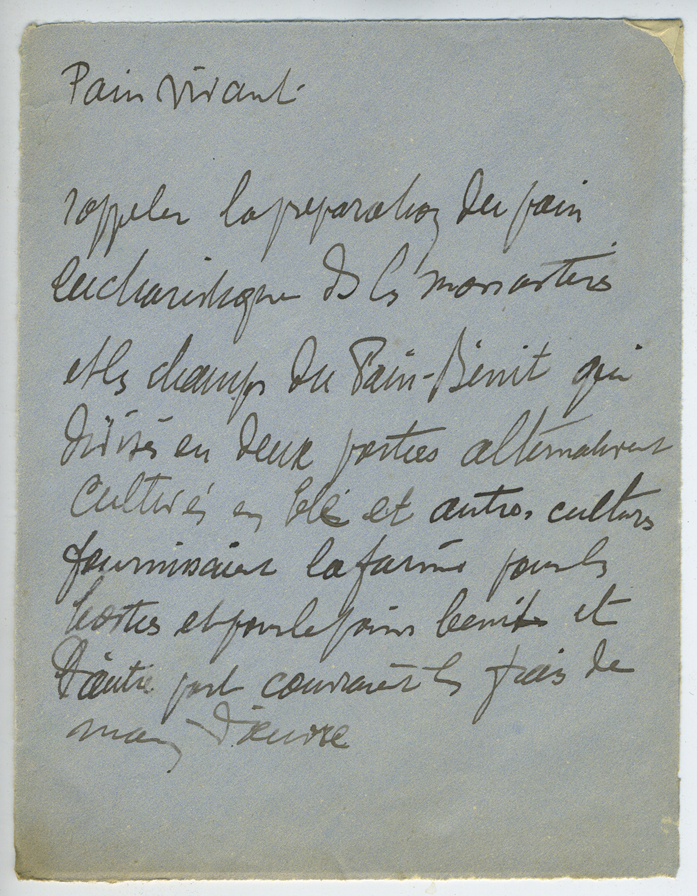 Pain Vivant
rappeler la préparation du pain
eucharistique ds les monastères
et les champs du Pain-Bénit qui
divisés en deux parties alternativement
cultivés en blé et autres cultures
fournissaient la farine pour les
hosties et pour le pain bénit et
d'autre part couvraient les frais de
main d'œuvre